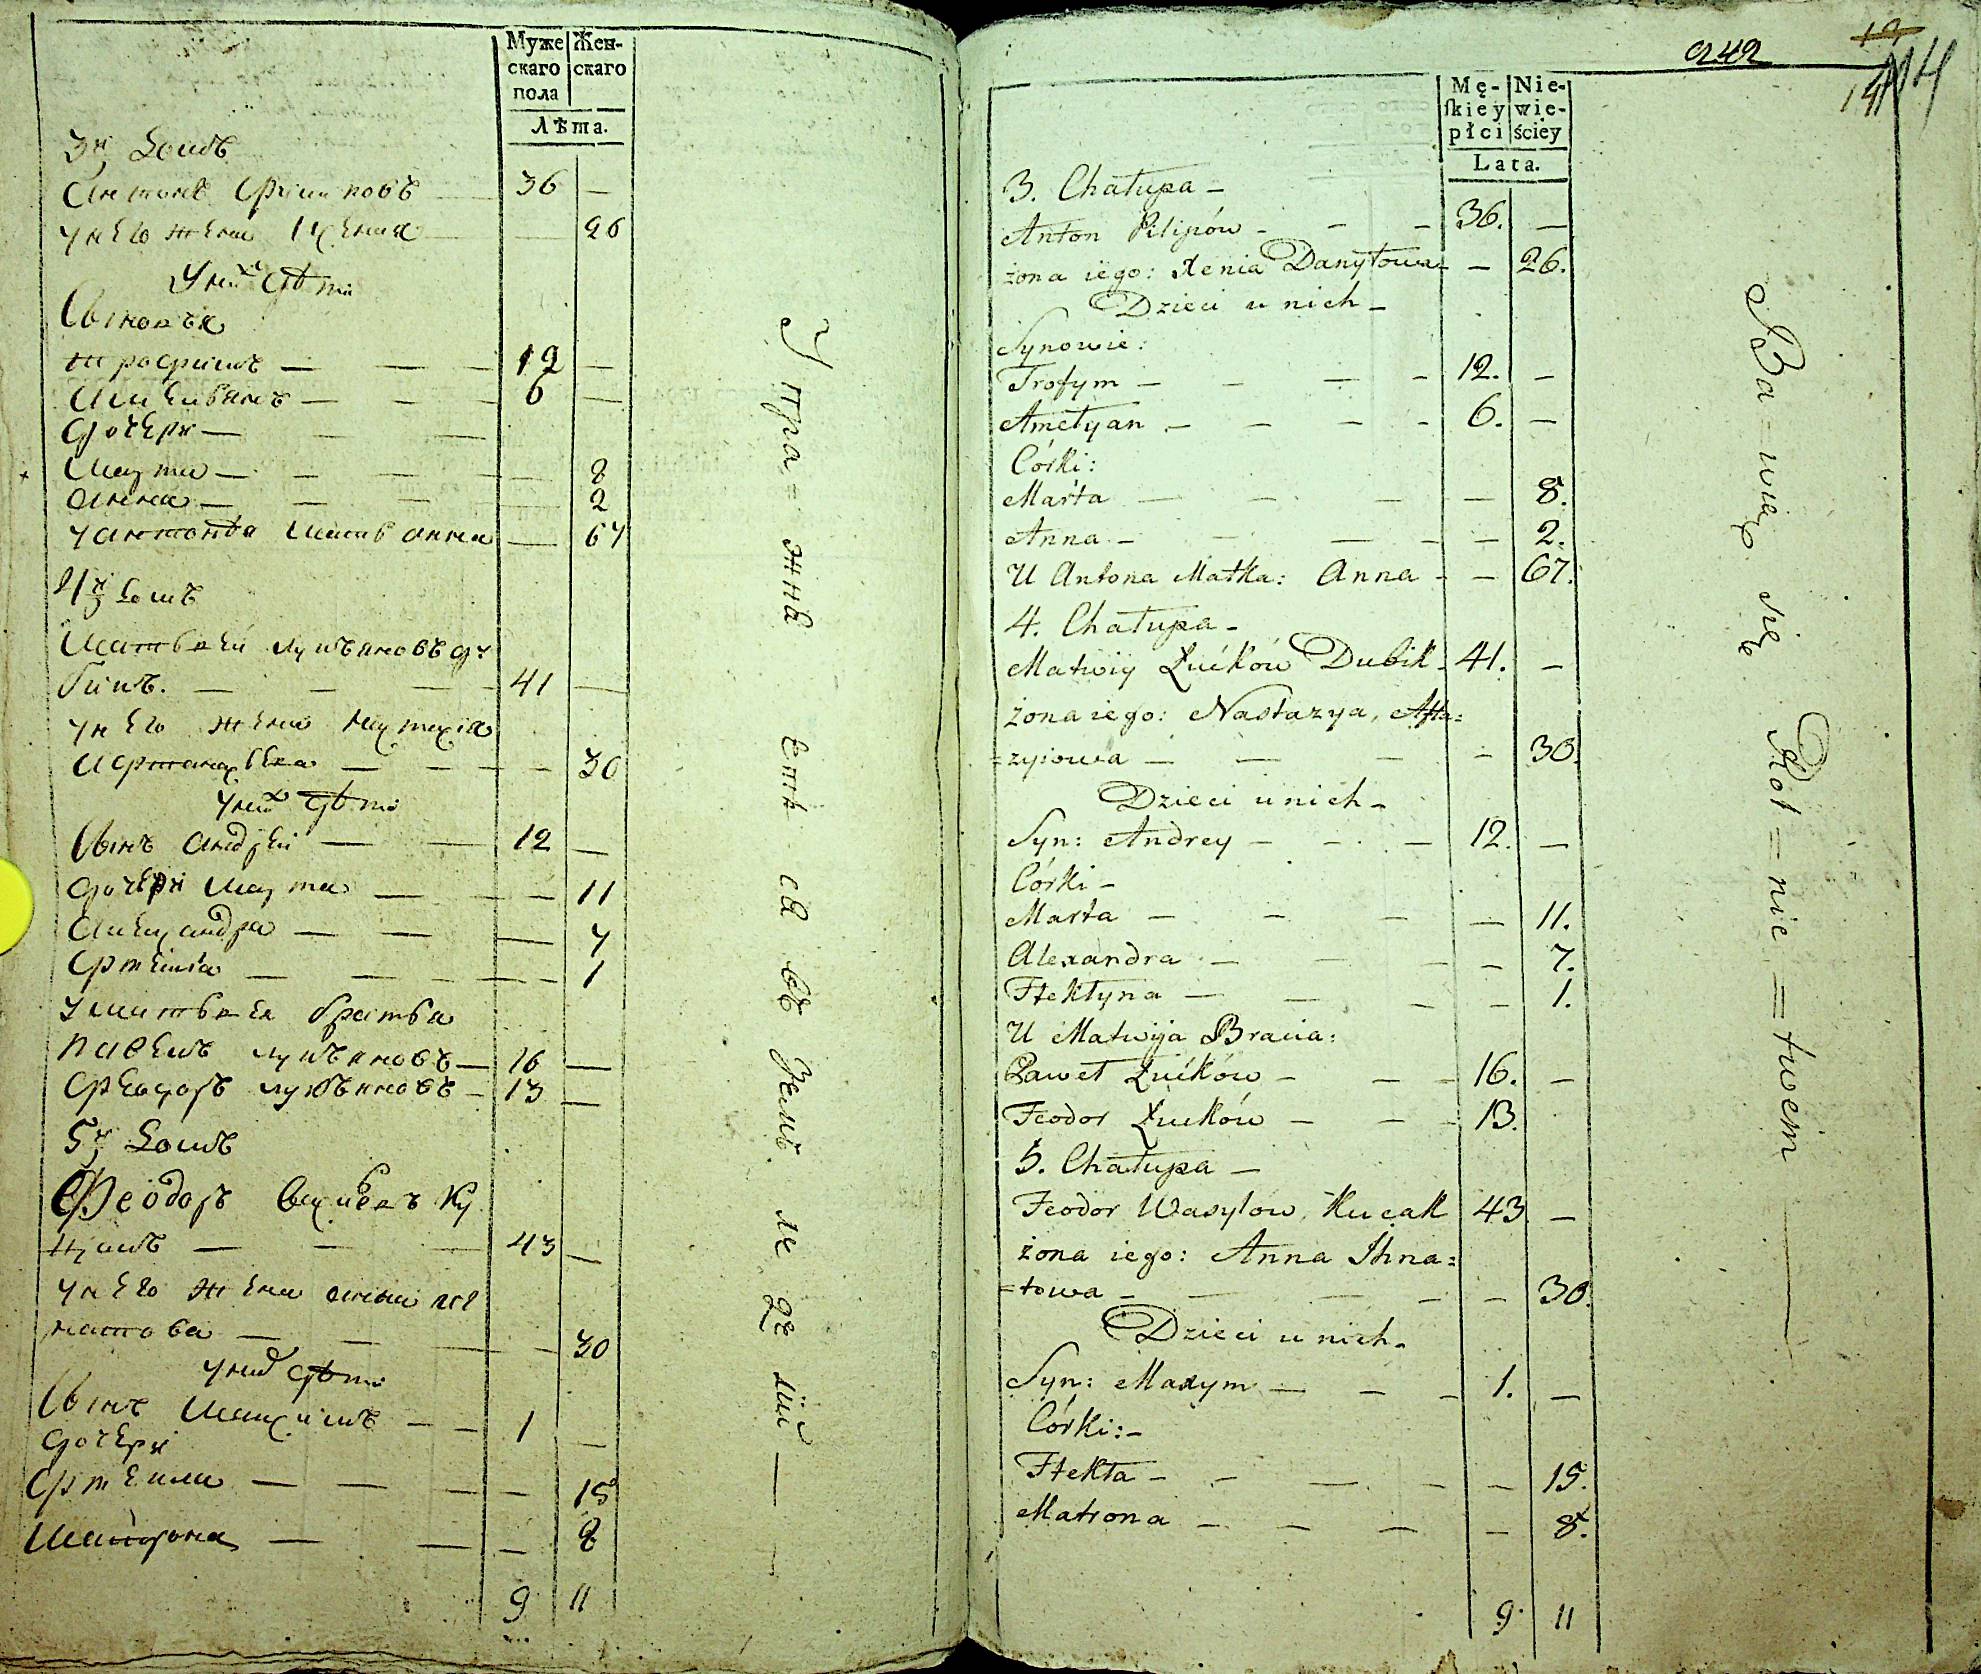 Муже Жен-
скаго скаго
пола
Лѣта.
3й Домъ
Антонъ Филиповъ — 36 —
у него жена Ксения — — 26
У них дѣти
Сыновья
Трофимъ — — — 12 —
Амельянъ — — — 6 —
дочери — — —
Марта — — — — 8
Анна — — — — 2
у антона мать анна — 67
4й Домъ
Матвей лукьяновъ ду
бикъ. — — — 41 —
у него жена настасiя
— — — 30
У них дѣти
Сынъ андрей — — 12 —
дочери Марта — — — 11
Александра — — — 7
— — — — 1
у матвея братья
павелъ лукьяновъ — 16 —
феодоръ лукьяновъ — 13 —
5й Домъ
Феодоръ Ку
— — — 43 —
у него жена анна иг
натова — — — 30
у них дѣти
Сынъ Максимъ — — 1 —
дочери
— — — — 15
Матрона — — — 8
9 11
Упра= жня ется въ земле де лiи —
242
14
Mę- Nie-
ſkiey wie-
płci ściey
Lata.
3. Chałupa —
Anton Pilipów — — — 36. —
żona iego: Xenia Danyłowa — — 26.
Dzieci u nich —
Synowie:
Trofym — — — — 12. —
Amelyan — — — — 6. —
Córki:
Marta — — — — 8.
Anna — — — — — 2.
U Antona Matka: Anna — — 67.
4. Chałupa —
Matwiy Łućków Dubik — 41. —
żona iego: Nastazya,
=zyiowa — — — — 30.
Dzieci u nich —
Syn: Andrey — — — 12. —
Córki —
Marta — — — — 11.
Alexandra — — — — 7.
Ftektyna — — — — 1.
U Matwija Bracia:
Paweł Łućków — — — 16. —
Feodor Łućków — — — 13.
5. Chałupa —
Feodor Wasylow, Kucak 43 —
żona iego: Anna Ihna=
=towa — — — — — 30.
Dzieci u nich —
Syn: Maxym — — — 1. —
Córki: —
Ftekta — — — — — 15.
Matrona — — — — 8.
9. 11
Ba=wią się Rol=nic=twem —